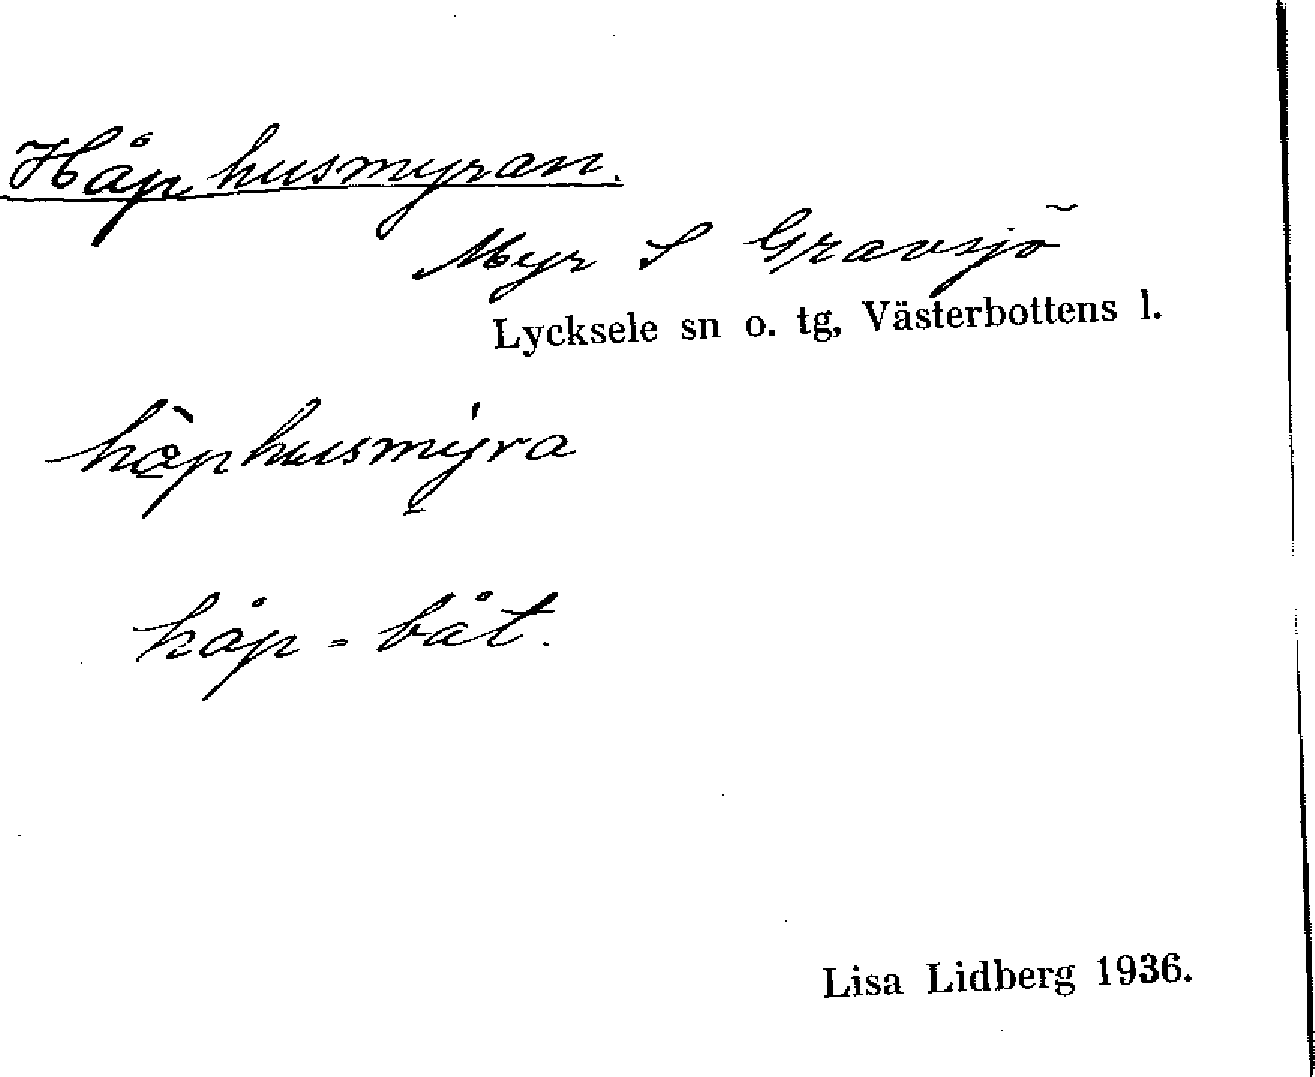 Håphusmyran.
Myr S Gravsjö
Lycksele sn o. tg, Västerbottens l.
hå̀phusmy̍ra
håp = båt.
Lisa Lidberg 1936.